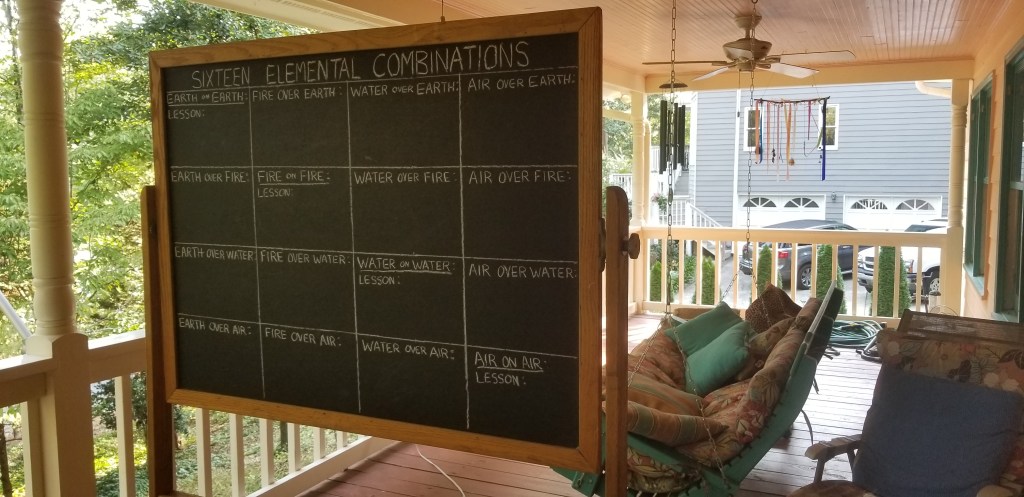 SIXTEEN ELEMENTAL COMBINATIONS
EARTH ON EARTH:
LESSON:
FIRE OVER EARTH:
WATER OVER EARTH:
AIR OVER EARTH:
EARTH OVER FIRE:
FIRE ON FIRE:
LESSON:
WATER OVER FIRE:
AIR OVER FIRE:
EARTH OVER WATER
FIRE OVER WATER:
WATER ON WATER:
LESSON:
AIR OVER WATER:
EARTH OVER AIR:
FIRE OVER AIR:
WATER OVER AIR:
AIR ON AIR:
LESSON: